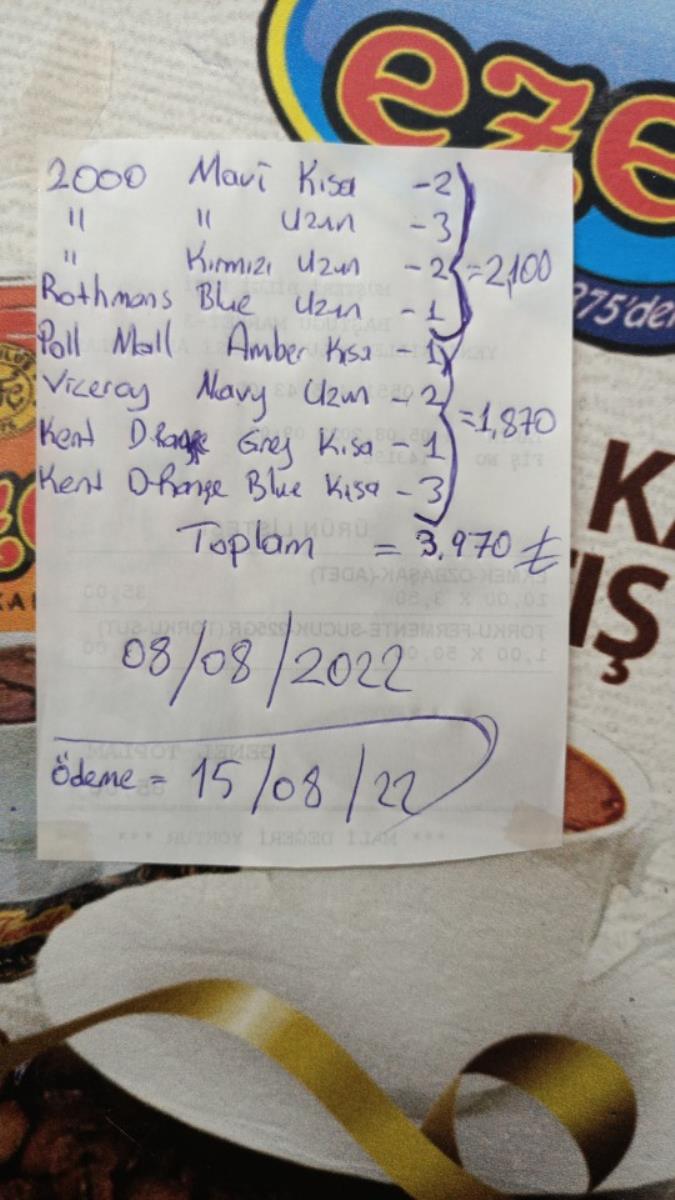 eze
2000 Mavi Kısa - 2
" " Uzun - 3
" Kırmızı Uzun - 2 = 2,100
Rothmans Blue Uzun - 1
Poll Mall Amber Kısa - 1
Viceroy Navy Uzun - 2 = 1,870
Kent D-Range Grey Kısa - 1
Kent D-Range Blue Kısa - 3
Toplam = 3.970 ₺
08/08/2022
Ödeme = 15/08/22
375'den
KA
IŞ